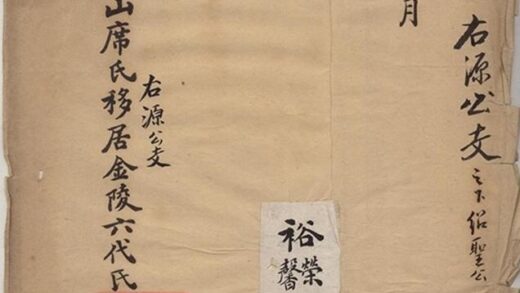 右源公支之下紹聖公
月
裕
榮馨
右源公支
山席氏移居金陵六代氏